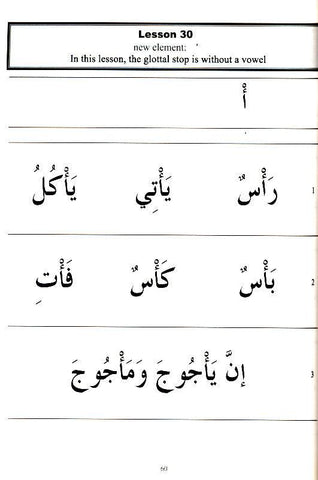 Lesson 30
new element:
In this lesson, the glottal stop is without a vowel
أْ
رَأْسٌ يَأْتِي يَأْكُلُ 1
بَأْسٌ كَأْسٌ فَأْتِ 2
إنَّ يَأْجُوجَ وَمَأْجُوجَ 3
60